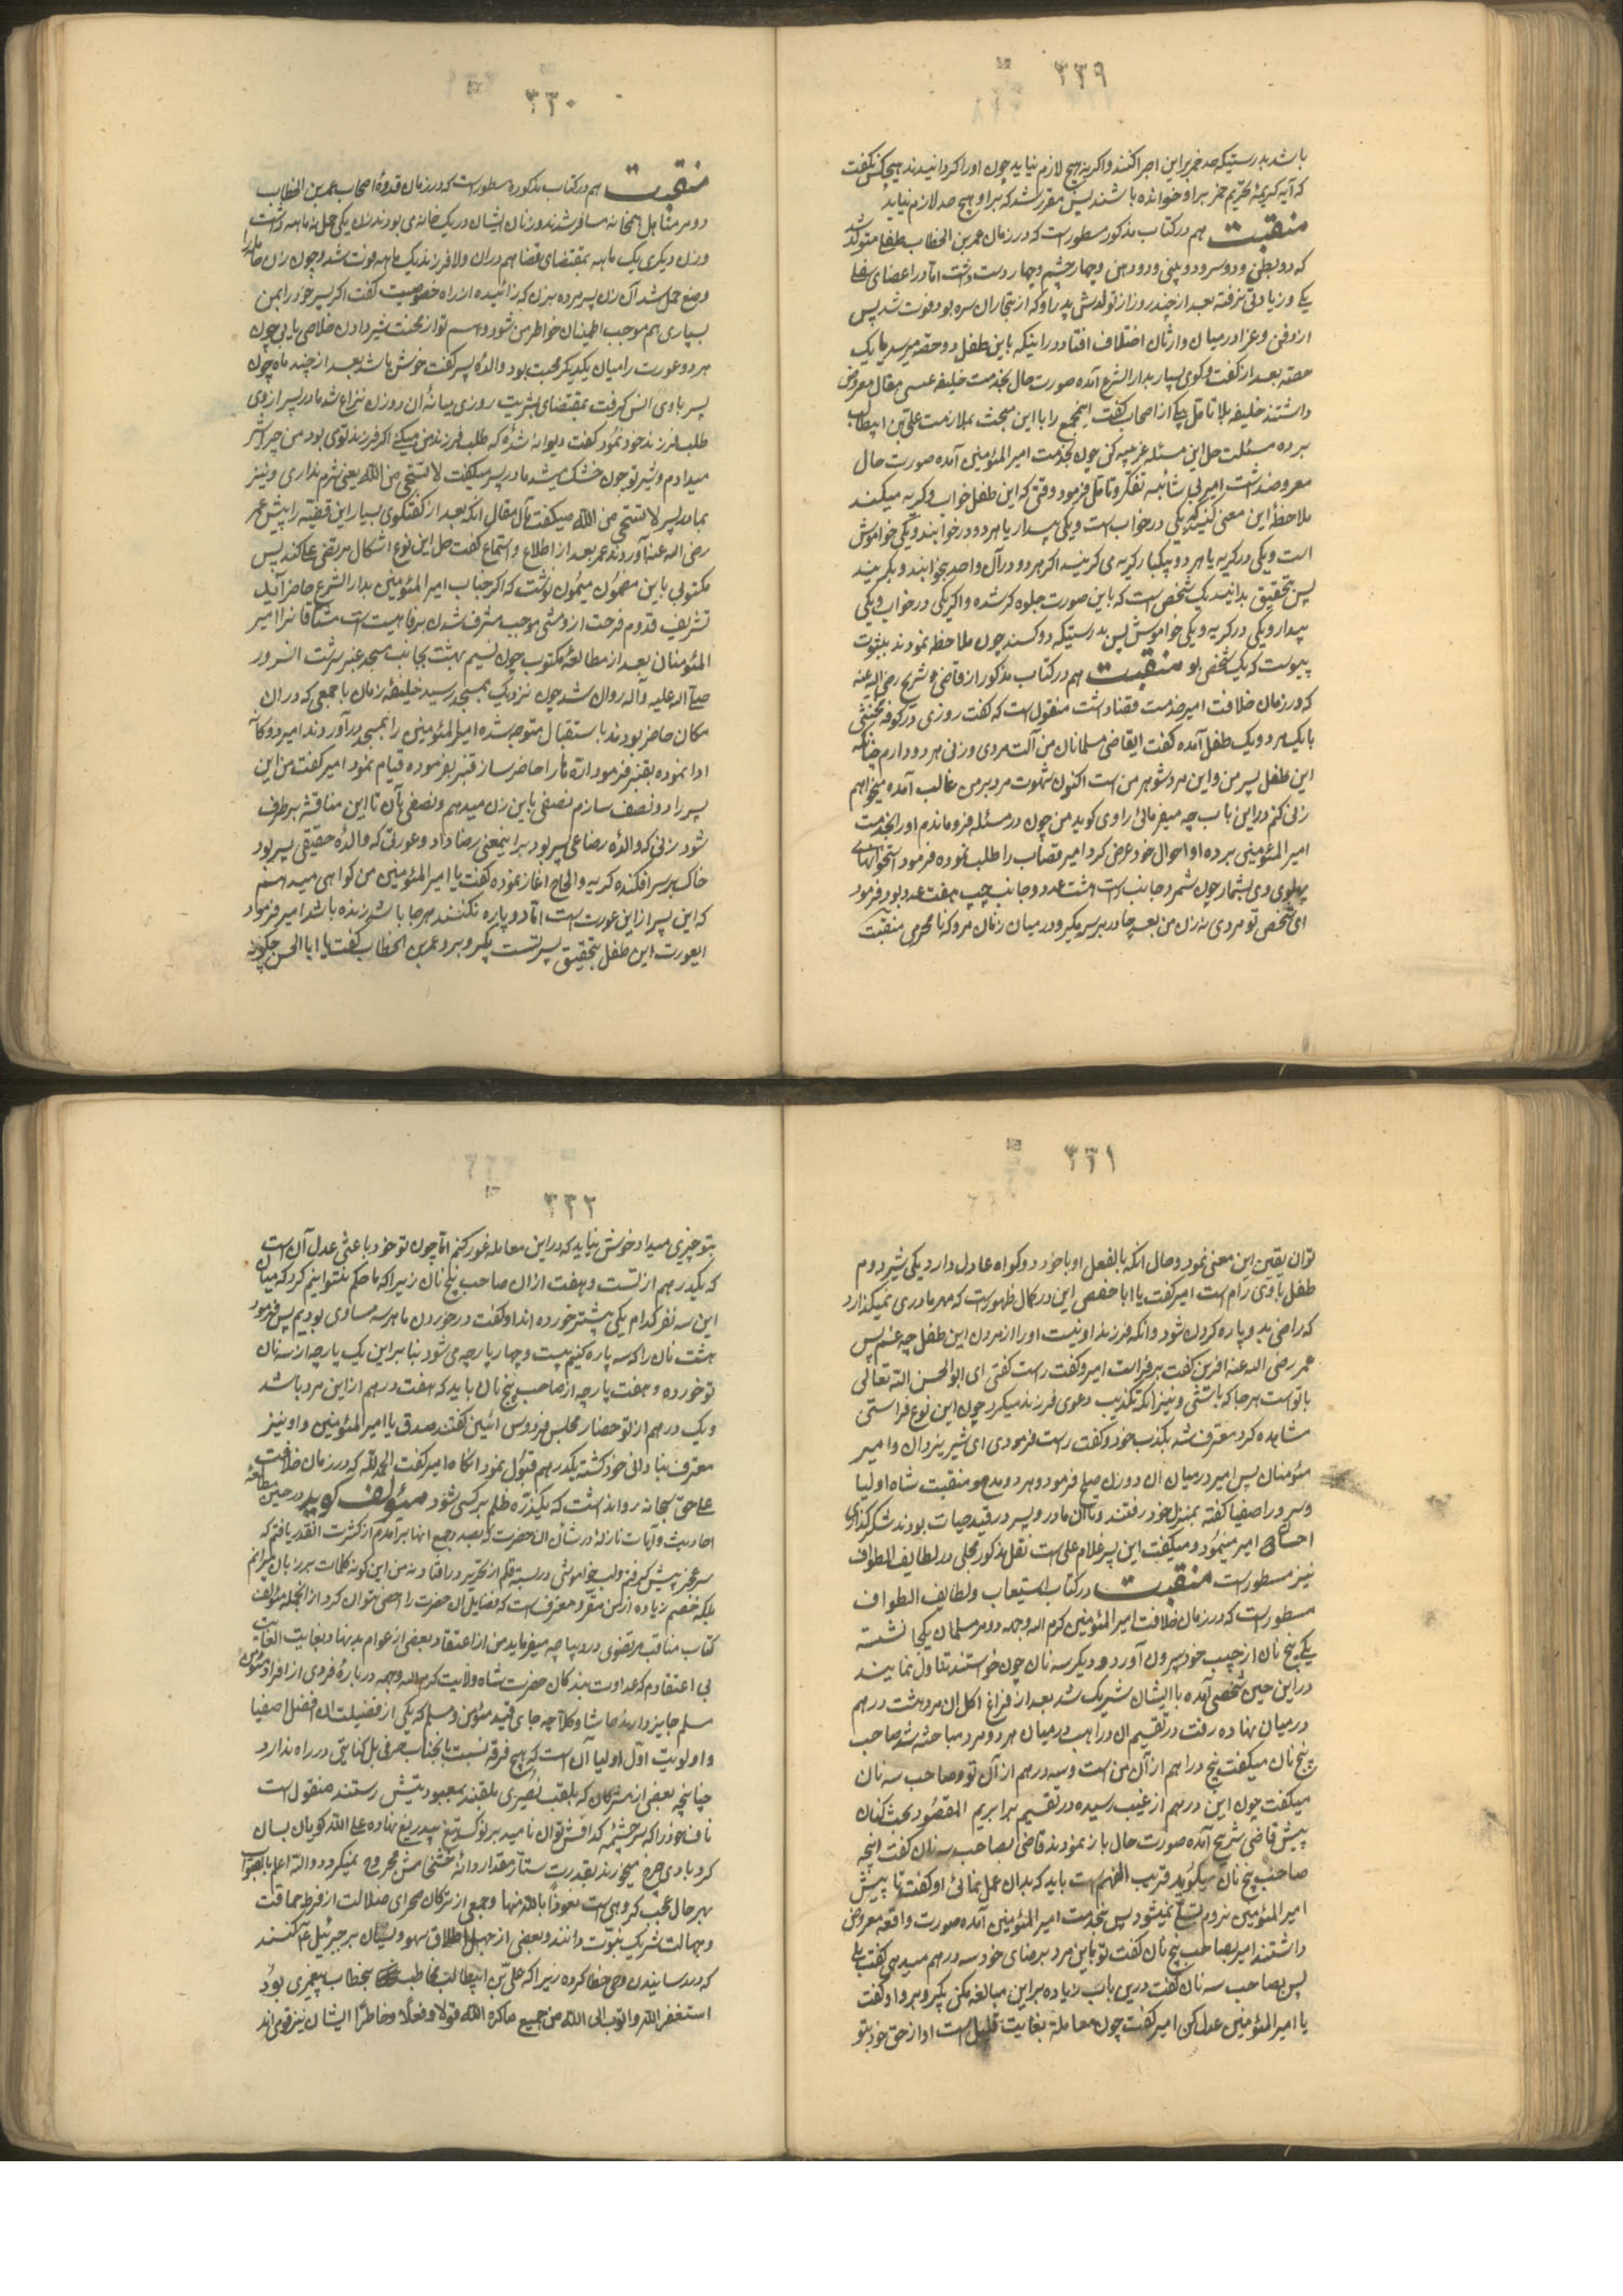 ۳۲۹
باشد بدرستیکه حد خمر براین اجرا کنند و اگر نه هیچ لازم نیاید چون او را گردانیدند هیچکس نگفت
که آیه کریمهٔ تحریم خمر برا و خوانده باشند پس مقرر شد که برا و هیچ حد لازم نیاید
منقبت هم در کتاب مذکور مسطور است که در زمان عمر بن الخطاب طفلی متولد شد
که دو بطن و دو سر و دو بینی و دو دهن و چهار چشم و چهار دست داشت اما در اعضای سفلی
یکی و زیادتی نرفته بعد از چند روز از تولدش پدر او که از تجاران سره بود فوت شد پس
از دفن و عزا در میان وارثان اختلاف افتاد در اینکه باین طفل دو حصه میرسد یا یک
حصه بعد از گفت و گوی بسیار بدار الشرع آمده صورت حال بخدمت خلیفه عیسی مقال معروض
داشتند خلیفه بلا تامل یکی از اصحاب گفت اینجمع را با این مبحث بملازمت علی بن ابیطالب
برده مسئلت حل این مسئله غریبه کن چون بخدمت امیر المؤمنین آمده صورت حال
معروض داشت امیر بی شائبه تفکر و تامل فرمود وقتی که این طفل خواب و گریه میکند
ملاحظهٔ این معنی کنید که یکی در خواب است و یکی بیدار یا هر دو در خوابند و یکی خواموش
است و یکی در گریه یا هر دو بیکبار گریه می کرینند اگر هر دو در آن واحد بخوابند و بگریند
پس بتحقیق بدانید یک شخص است که باین صورت جلوه گر شده و اگر یکی در خواب و یکی
بیدار و یکی در گریه و یکی خواموش پس بدرستیکه دو کسند چون ملاحظه نمودند بثبوت
پیوست که یک شخص بود منقبت هم در کتاب مذکور از قاضی شریح رضی الله عنه
که در زمان خلافت امیر خدمت قضا داشت منقول است که گفت روزی در کوفه مخنثی
با یک مرد و یک طفل آمده گفت ایقاضی مسلمانان من آلت مردی و زنی هر دو دارم چنانکه
این طفل پسر من و این مرد شوهر من است اکنون شهوت مرد بر من غالب آمده میخواهم
زنی کنم در این باب چه میفرمائی راوی گوید من چون در مسئله فرو ماندم او را بخدمت
امیر المؤمنین برده او احوال خود عرض کرد امیر قصاب را طلب نموده فرمود استخوانهای
پهلوی وی بشمار چون شمرد جانب راست هشت عدد و جانب چپ هفت عدد بود فرمود
ای شخص تو مردی نه زن من بعد چادر بر سر مگیر و در میان زنان مرو که نا محرمی منقبت
۳۳۰
منقبت هم در کتاب مذکوره مسطور است که در زمان قدوهٔ اصحاب عمر بن الخطاب
دو مرد متاهل همخانه مسافر شدند و زنان ایشان در یک خانه ی بودند زن یکی حمل نه ماهه داشت
و زن دیگری یک ماهه بمقتضای قضا هم در ان ولا فرزند یک ماهه فوت شد و چون زن حامله را
وضع حمل شد آن زن پسر مرده بزن که زائیده از راه خصوصیت گفت اگر پسر خود را بمن
بسپاری هم موجب اطمینان خاطر من شود و هم تو از محنت شیر دادن خلاصی یابی چون
هر دو عورت را میان یکدیگر محبت بود والدهٔ پسر گفت خوش باشد بعد از چند ماه چون
پسر با وی انس گرفت بمقتضای بشریت روزی میانهٔ آن دو زن نزاع شد مادر پسر از وی
طلب فرزند خود نمود گفت دیوانه شدهٔ که طلب فرزند من میکنی اگر فرزند توی بود من چرا شیر
میدادم و شیر تو چون خشک میشد مادر پسر میگفت لا تستحی من الله یعنی شرم نداری و نیز
بمادر پسر لا تستحی من الله میگفت مآل مقال آنکه بعد از گفتگوی بسیار این قضیه را پیش عمر
رضی الله عنه آوردند عمر بعد از اطلاع و استماع گفت حل این نوع اشکال مرتضی علی کند پس
مکتوبی باین مضمون میمون نوشت که اگر جناب امیر المؤمنین بدار الشرع حاضر آید
تشریف قدوم فرحت لزومش موجب مشرف شدن برفاهیت است مشتاقانرا امیر
المؤمنان بعد از مطالعهٔ مکتوب چون نسیم بهشت بجانب مسجد عنبر سرشت آنسرور
صلی الله علیه و آله روان شد چون نزدیک بمسجد رسید خلیفهٔ زمان با جمعی که در ان
مکان حاضر بودند باستقبال متوجه شده امیر المؤمنین را بمسجد درآوردند امیر دوگانه
ادا نموده بقنبر فرمود ارّه ما را حاضر ساز قنبر بفرموده قیام نمود امیر گفت من این
پسر را دو نصف سازم نصفی باین زن میدهم و نصفی بآن تا این مناقشه برطرف
شود زنی که والدهٔ رضاعی پسر بود براینمعنی رضا داد و عورتی که والدهٔ حقیقی پسر بود
خاک بر سر افکنده گریه و الحاح آغاز نموده گفت یا امیر المؤمنین من گواهی میدهم
که این پسر از این عورت است اما دو پاره نکنند هر جا باشد زنده باشد امیر فرمود
ایعورت این طفل بتحقیق پسر تست بگیر و برو عمر بن الخطاب گفت یا ابا الحسن چگونه
۳۳۱
توان یقین این معنی نمود و حال آنکه بالفعل او با خود دو گواه عادل دارد یکی شیر دوم
طفل با وی رام است امیر گفت یا ابا حفص این در کمال ظهور است که مهر مادری نمیگذارد
که راضی بدو پاره کردن شود و آنکه فرزند او نیست او را از مردن این طفل چه غم پس
عمر رضی الله عنه آفرین گفت بر فراست امیر و گفت راست گفتی ای ابو الحسن الله تعالی
با تو است هر جا که باشی و نیز آنکه تکذیب دعوی فرزند میکرد چون این نوع فراستی
مشاهده کرد معترف شد بکذب خود و گفت راست فرمودی ای شیر یزدان و امیر
مؤمنان پس امیر در میان آن دو زن صلح فرمود و هر دو مدح و منقبت شاه اولیا
و سرور اصفیا گفته بمنزل خود رفتند و تا آن مادر و پسر در قید حیات بودند شکر گذاری
احسان امیر مینمود و میگفت این پسر غلام علی است نقل مذکور مجلی در لطایف الطوایف
نیز مسطور است منقبت در کتاب استیعاب و لطایف الطوایف
مسطور است که در زمان خلافت امیر المؤمنین کرم الله وجهه دو مرد مسلمان یکجا نشسته
یکی پنج نان از جیب خود بیرون آورد و دیگر سه نان چون خواستند تناول نمایند
در این حین شخصی آمده با ایشان شریک شد بعد از فراغ اکل آن مرد هشت درهم
در میان نهاده رفت در تقسیم آن دراهم در میان هر دو مرد مباحثه شد صاحب
پنج نان میگفت پنج دراهم از آن من است و سه درهم از آن تو و صاحب سه نان
میگفت چون این درهم از غیب رسیده در تقسیم برابریم المقصود بحث کنان
پیش قاضی شریح آمده صورت حال باز نمودند قاضی بصاحب سه نان گفت آنچه
صاحب پنج نان میگوید قریب الفهم است باید که بدان عمل نمائی او گفت تا پیش
امیر المؤمنین نروم تسلی نمیشود پس بخدمت امیر المؤمنین آمده صورت واقعه معروض
داشتند امیر بصاحب پنج نان گفت تو باین مرد برضای خود سه درهم میدهی گفت بلی
پس بصاحب سه نان گفت درین باب زیاده براین مبالغه مکن بگیر و برو او گفت
یا امیر المؤمنین عدل کن امیر گفت چون معامله بغایت قلیل است او از حق خود بتو
۳۳۲
بتو چیزی میداد خوش نیاید که در این معامله غور کنم اما چون تو خود باعثی عدل آن است
که یکدرهم از تست و هفت ازان صاحب پنج نان زیرا که ما حکم نتوانیم کرد که میان
این سه نفر کدام یکی بیشتر خورده اند او گفت در خوردن ما هر سه مساوی بودیم پس فرمود
هشت نان را که سه پاره کنیم بیست و چهار پارچه می شود بنا براین یک پارچه از سه نان
تو خورده و هفت پارچه از صاحب پنج نان باید که هفت درهم از این مرد باشد
و یک درهم از تو حضار مجلس فردوس آئین گفتند صدق یا امیر المؤمنین و او نیز
معترف بنادانی خود گشته یکدرهم قبول نمود آنگاه امیر گفت الحمد لله که در زمان خلافت
علی حق سبحانه روا نداشت که یکذره ظلم بر کسی شود مؤلف گوید در حین مطالعهٔ
احادیث و آیات نازله در شان آن حضرت که بصدد جمع آنها برآمدم از کثرت آنقدر یافتم که
سر عجز پیش گرفته و لب خواموشی در بسته قلم از تحریر در افتاد نه من این گونه کلمات بر زبان میرانم
بلکه خصم زیاده از من مقر و معترف است که فضایل آن حضرت را احصی نتوان کرد از آنجمله مؤلف
کتاب مناقب مرتضوی در دیباچه میفرماید من از اعتقاد بعضی از عوام بد نهاد بغایت الغایت
بی اعتقادم که عداوت بندگان حضرت شاه ولایت کرم الله وجهه در بارهٔ فردی از افراد مؤمن
مسلم جایز دارند حاشا و کلا چه جای قید مؤمن و مسلم که یکی از فضیلت آن افضل اصفیا
و اولویت اول اولیا آن است که هیچ فرقه نسبت بآنجناب حرفی بل کنایتی در راه ندارد
چنانچه بعضی از مشرکان که بلقب نصیری ملقبند بمعبودیتش پرستند منقول است
ناف خود را که سرچشمه کدافش توان نامید بر نوک تیغ بیدریغ نهاده علی الله گویان بسان
گرد بادی چرخ میخورند بقدرت ستار مقدار دانهٔ خشخاش مجروح نمیگردد والله اعلم بالصواب
بهر حال عجب گروهی است نعوذ بالله منها و جمعی از ترکان صحرای ضلالت از فرط حماقت
و جهالت شریک نبوت دانند و بعضی از جهل اطلاق سهو و نسیان بر جبرئیل ع کنند
که در رسانیدن وحی خطا کرده زیرا که علی بن ابیطالب مخاطب بخطاب پیغمبری بود
استغفر الله و اتوب الی الله من جمیع ما کره الله قولا و فعلا و خاطرا ایشان نیز قومی اند